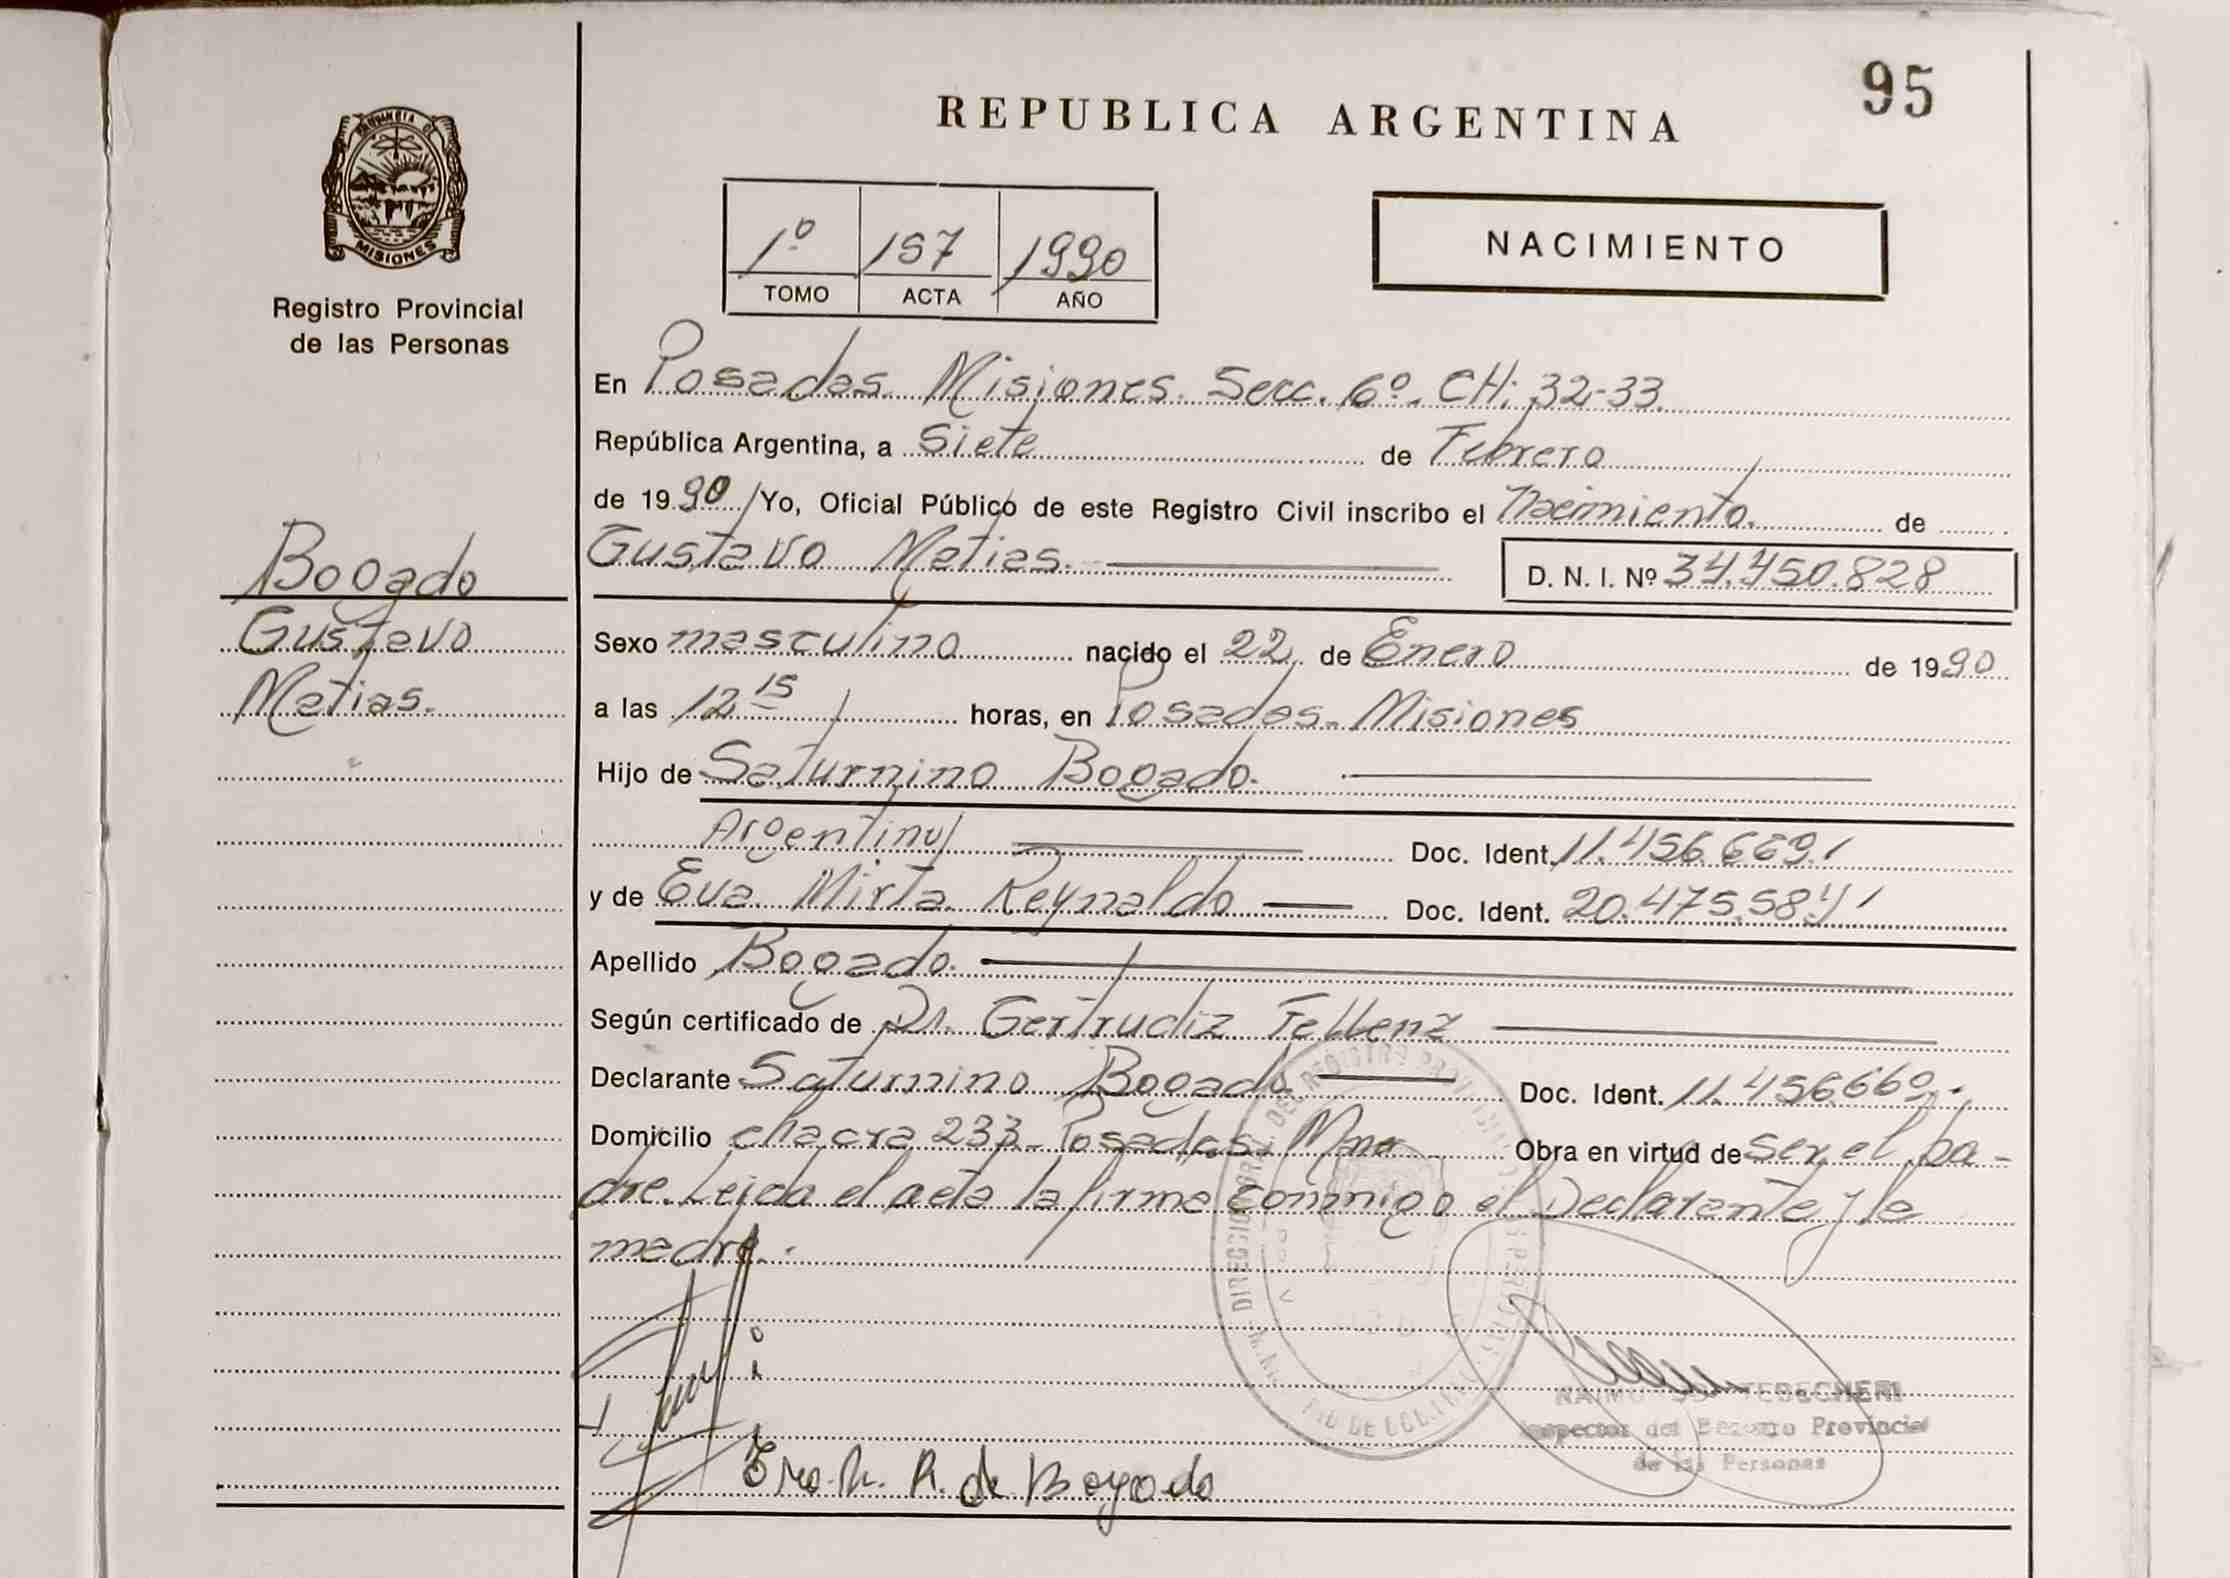 95
REPUBLICA ARGENTINA
PROVINCIA DE
MISIONES
Registro Provincial
de las Personas
1º 157 1990
TOMO ACTA AÑO
NACIMIENTO
En Posadas. Misiones. Secc. 6º. CH: 32-33.
República Argentina, a Siete de Febrero
de 1990 / Yo, Oficial Público de este Registro Civil inscribo el Nacimiento. de
Gustavo Matias. D. N. I. Nº 34.450.828
Bogado
Gustavo
Matias.
Sexo masculino nacido el 22 de Enero de 1990
a las 12 15 horas, en Posadas. Misiones
Hijo de Saturnino Bogado.
Argentino Doc. Ident. 11.456.669
y de Eva Mirta Reynaldo Doc. Ident. 20.475.584
Apellido Bogado.
Según certificado de Dr. Gertrudiz Fellenz
Declarante Saturnino Bogado Doc. Ident. 11.456.669.
Domicilio chacra 233 - Posadas. Mnes Obra en virtud de ser el pa-
dre. Leida el acta la firma conmigo el Declarante y la
madre.
TEDESCHERI
Inspector del Registro Provincial
de las Personas
R. de Bogado